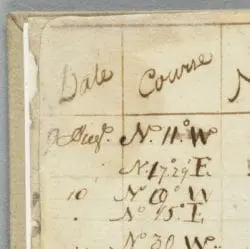 Date Course N
9 Augt. No. 11° W
N. 17° 29' E.
10 No 0° W
. No 45° E
No 30 W